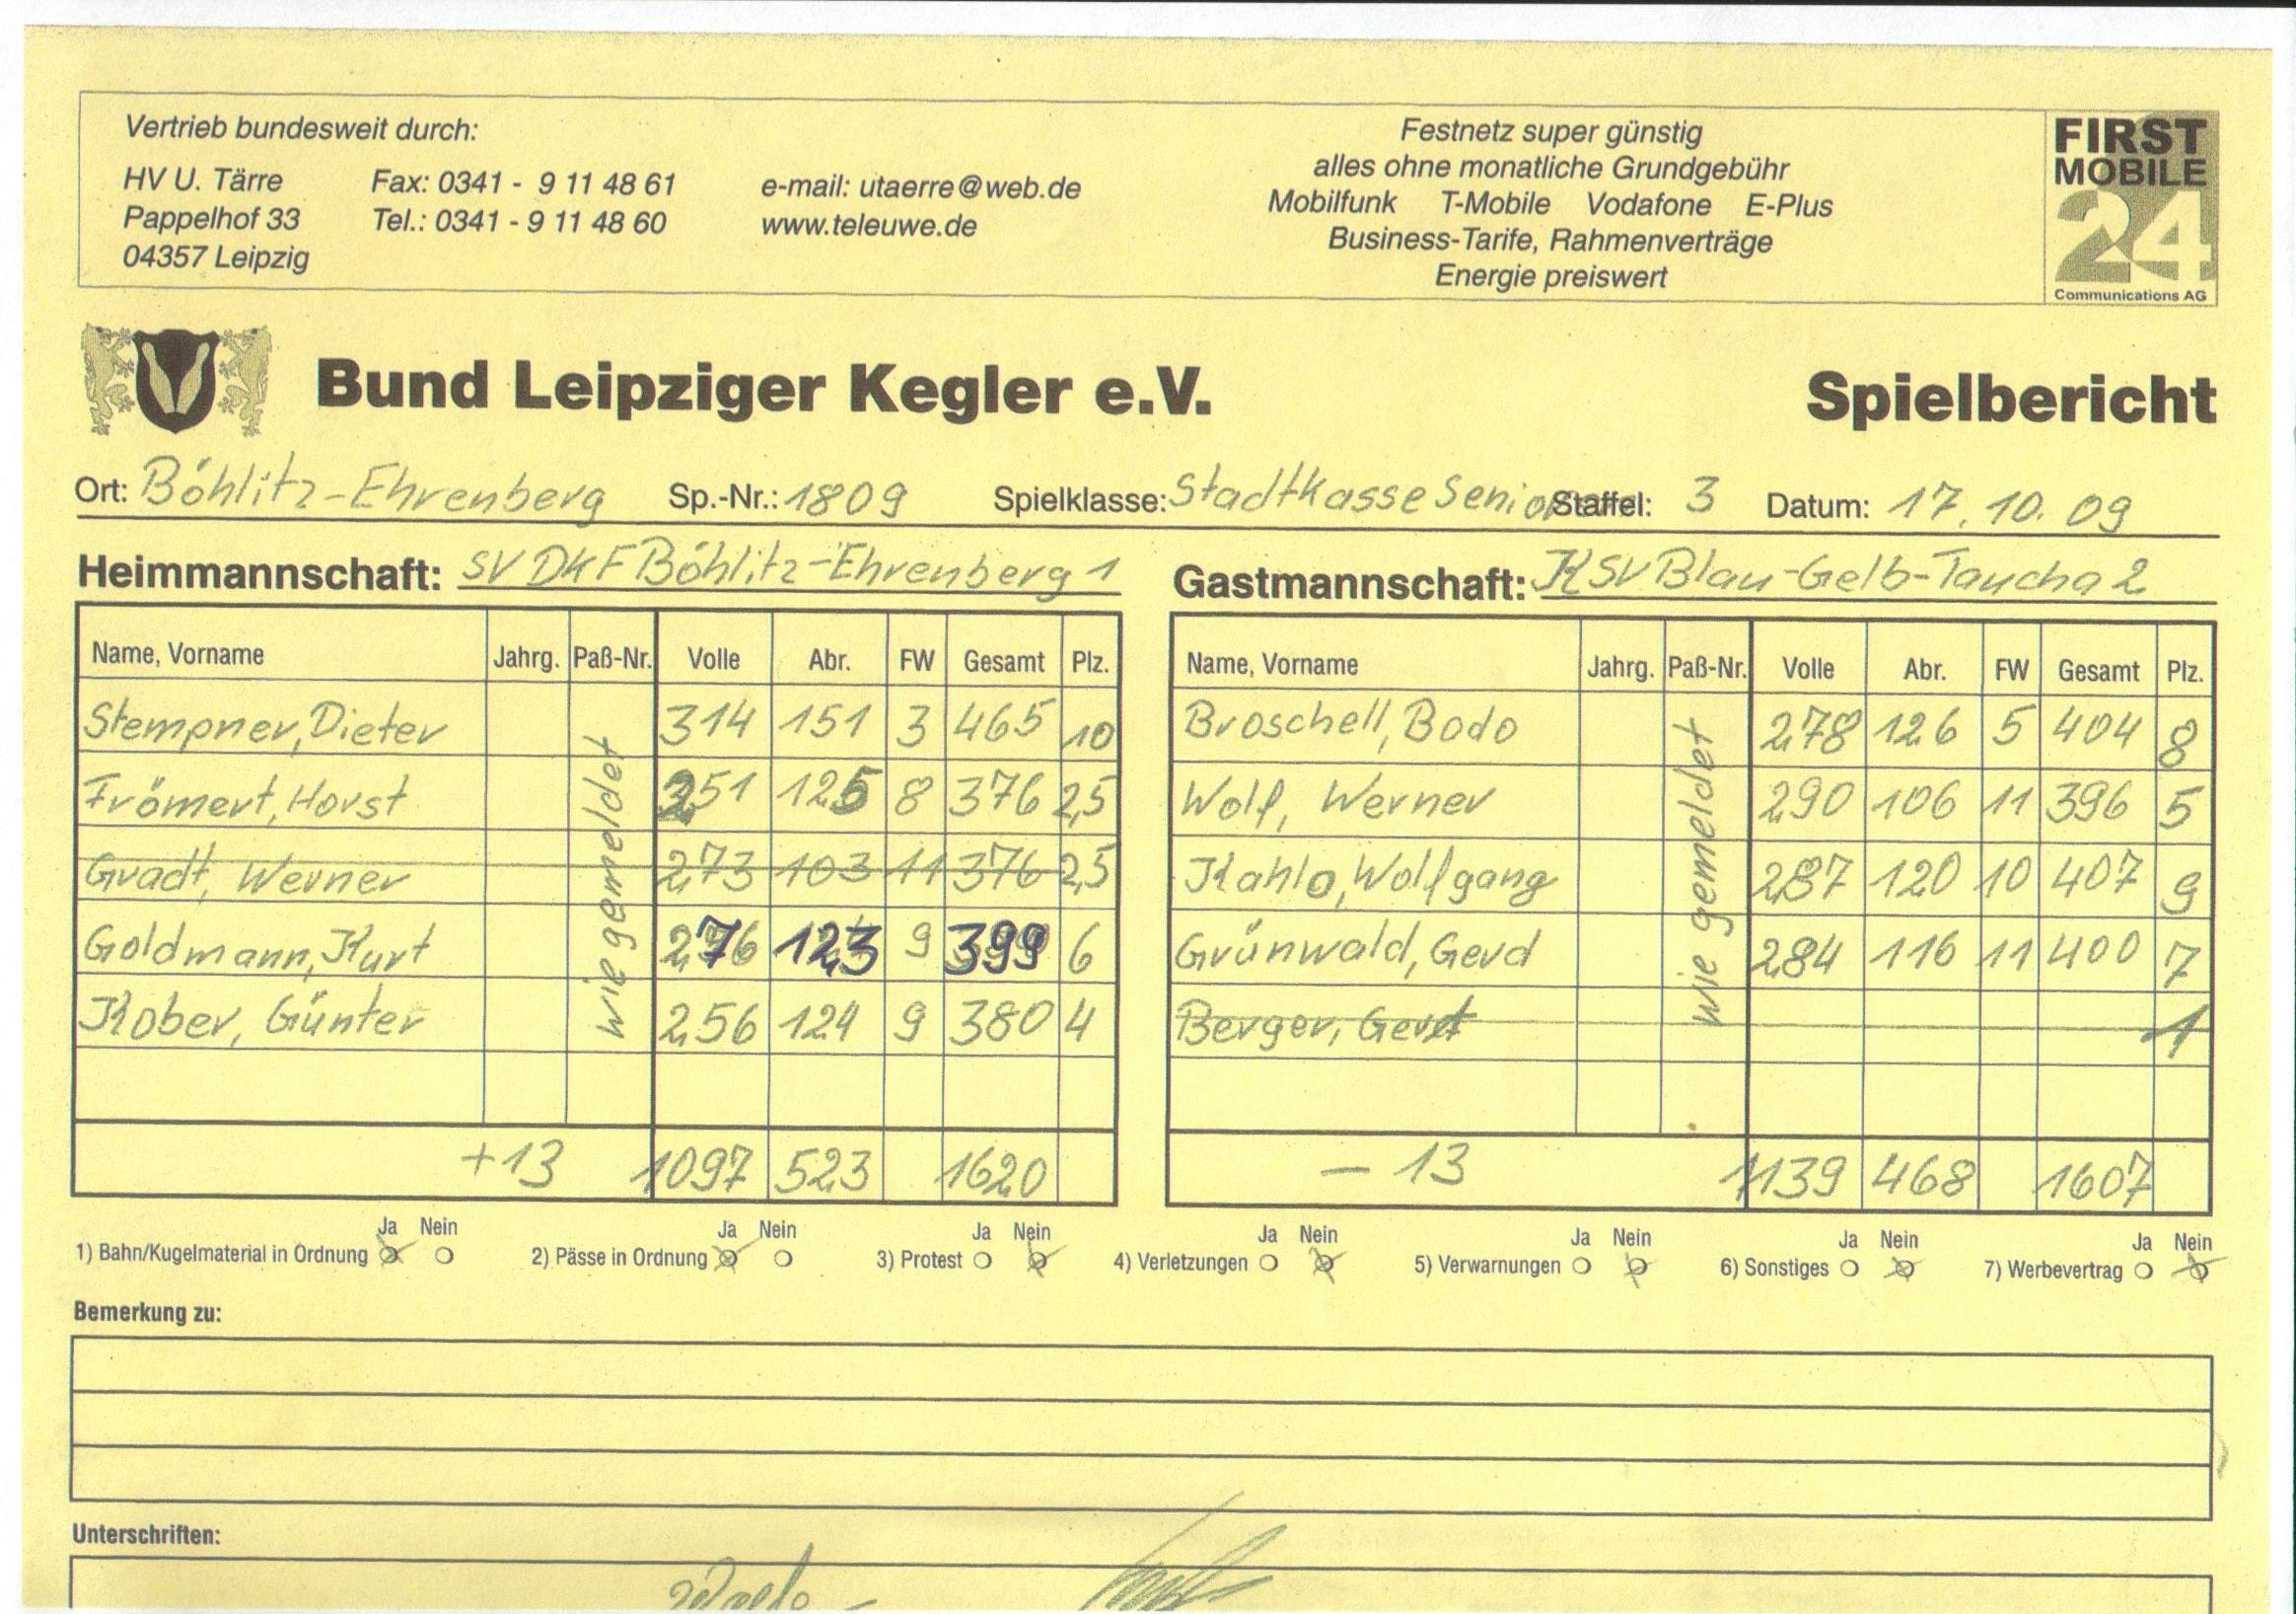 Vertrieb bundesweit durch:
HV U. Tärre Fax: 0341 - 9 11 48 61 e-mail: utaerre@web.de
Pappelhof 33 Tel.: 0341 - 9 11 48 60 www.teleuwe.de
04357 Leipzig
Festnetz super günstig
alles ohne monatliche Grundgebühr
Mobilfunk T-Mobile Vodafone E-Plus
Business-Tarife, Rahmenverträge
Energie preiswert
FIRST
MOBILE
24
Communications AG
Bund Leipziger Kegler e.V. Spielbericht
Ort: Böhlitz-Ehrenberg Sp.-Nr.: 1809 Spielklasse: Stadtkasse Senioren Staffel: 3 Datum: 17.10.09
Heimmannschaft: SV DKF Böhlitz-Ehrenberg 1
Name, Vorname Jahrg. Paß-Nr. Volle Abr. FW Gesamt Plz.
Stempner, Dieter 314 151 3 465 10
Frömert, Horst 251 125 8 376 2,5
Gradt, Werner 273 103 11 376 2,5
Goldmann, Kurt 276 123 9 399 6
Kober, Günter 256 124 9 380 4
wie gemeldet
+13 1097 523 1620
Gastmannschaft: KSV Blau-Gelb-Taucha 2
Name, Vorname Jahrg. Paß-Nr. Volle Abr. FW Gesamt Plz.
Broschell, Bodo 278 126 5 404 8
Wolf, Werner 290 106 11 396 5
Kahlo, Wolfgang 287 120 10 407 9
Grünwald, Gerd 284 116 11 400 7
Berger, Gerd 1
wie gemeldet
- 13 1139 468 1607
Ja Nein Ja Nein Ja Nein Ja Nein Ja Nein Ja Nein Ja Nein
1) Bahn/Kugelmaterial in Ordnung 2) Pässe in Ordnung 3) Protest 4) Verletzungen 5) Verwarnungen 6) Sonstiges 7) Werbevertrag
Bemerkung zu:
Unterschriften: